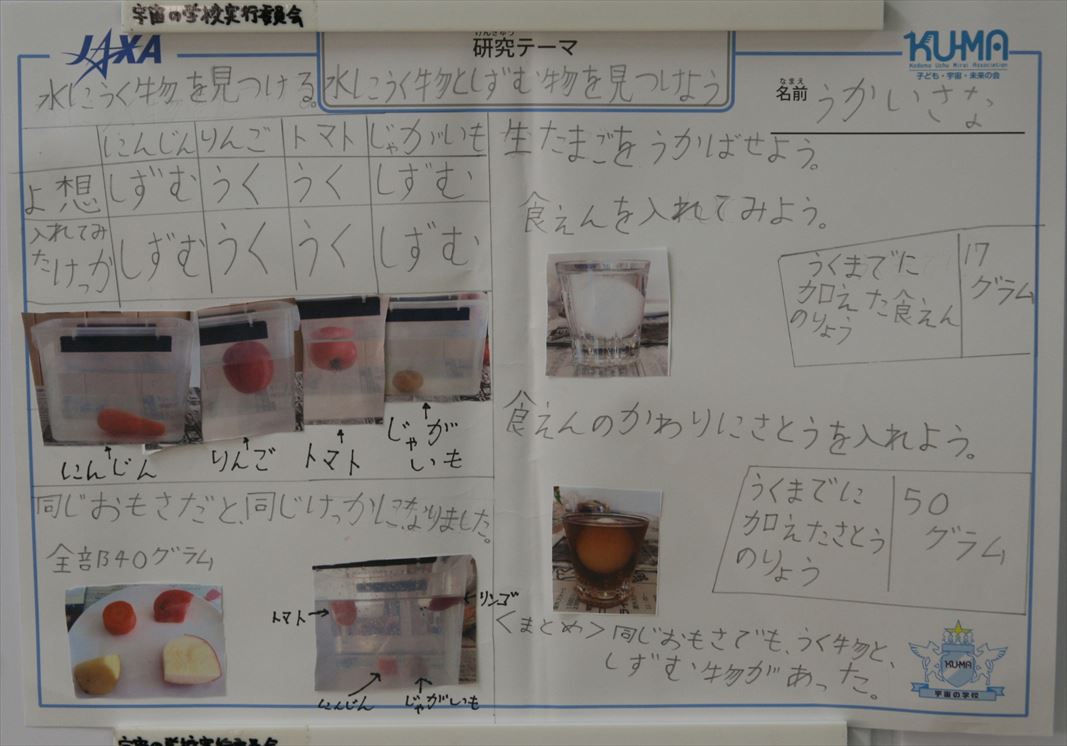 宇宙の学校実行委員会
JAXA
けんきゅう
研究テーマ
KU-MA
Kodomo Uchu Mirai Association
子ども・宇宙・未来の会
水にうく物を見つける。水にうく物としずむ物を見つけよう
なまえ
名前 うかいさな
にんじん りんご トマト じゃがいも
よ想 しずむ うく うく しずむ
入れてみ
たけっか しずむ うく うく しずむ
にんじん りんご トマト じゃが
いも
同じおもさだと、同じけっかになりました。
全部40グラム
トマト リンゴ
にんじん じゃがいも
生たまごをうかばせよう。
食えんを入れてみよう。
うくまでに
加えた食えん
のりょう
17
グラム
食えんのかわりにさとうを入れよう。
うくまでに
加えたさとう
のりょう
50
グラム
<まとめ>同じおもさでも、うく物と、
しずむ物があった。
KUMA
宇宙の学校
宇宙の学校実行委員会